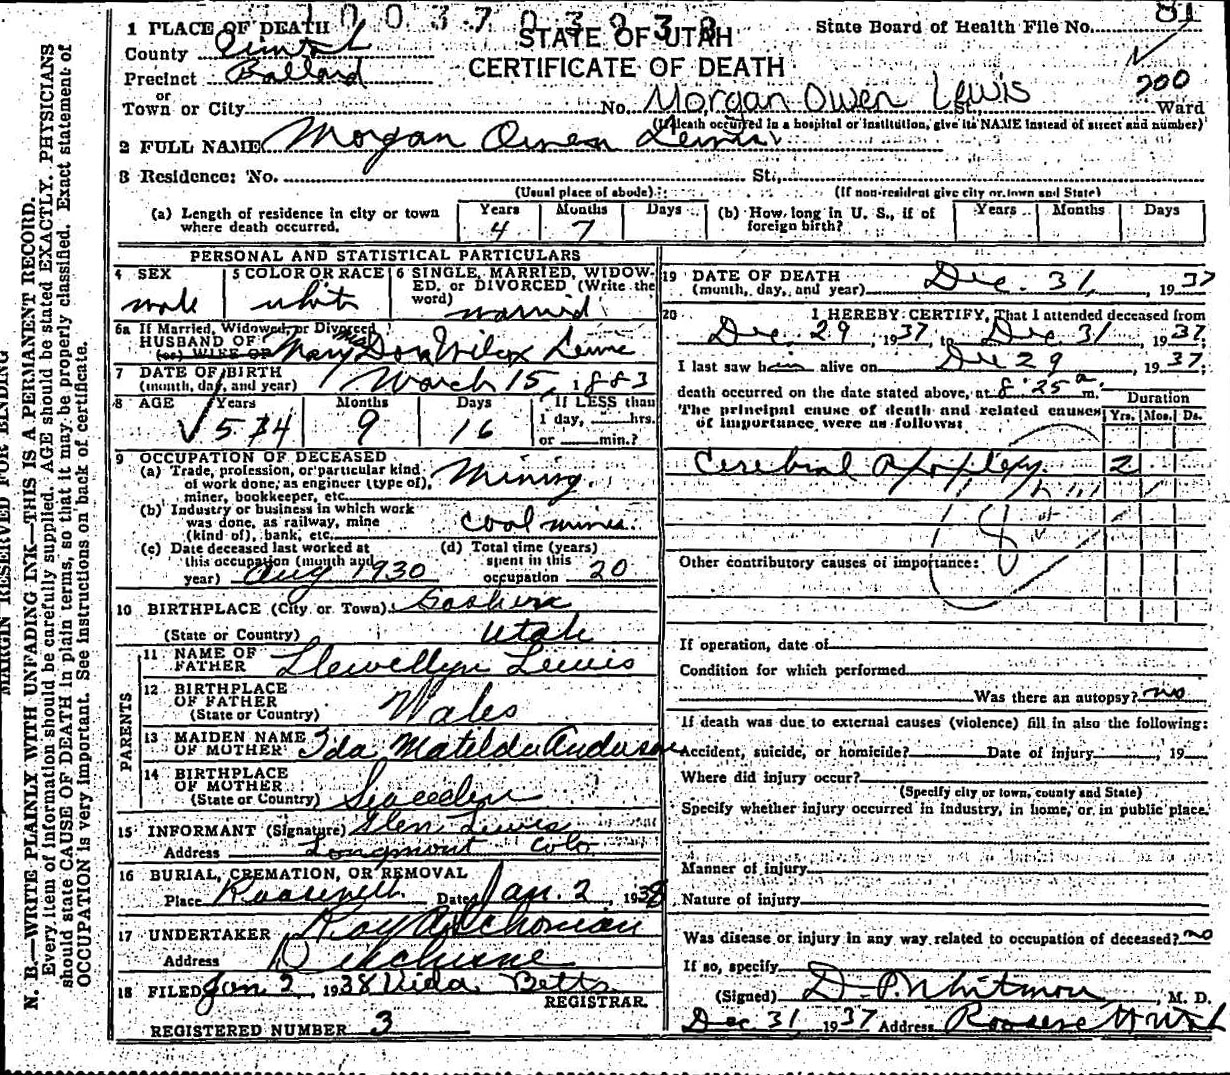 1003703038
81
1 PLACE OF DEATH
STATE OF UTAH
State Board of Health File No.
County Uintah
CERTIFICATE OF DEATH
Precinct Ballard
200
or
Town or City
No. Morgan Owen Lewis St. Ward
(If death occurred in a hospital or institution, give its NAME instead of street and number)
2 FULL NAME Morgan Owen Lewis
3 Residence: No. St.,
(Usual place of abode) (If non-resident give city or town and State)
(a) Length of residence in city or town where death occurred. Years 4 Months 7 Days
(b) How long in U. S., if of foreign birth? Years Months Days
PERSONAL AND STATISTICAL PARTICULARS
4 SEX male
5 COLOR OR RACE white
6 SINGLE, MARRIED, WIDOW-
ED. or DIVORCED (Write the
word) married
6a If Married, Widowed, or Divorced
HUSBAND OF
(or) WIFE OF Mary Dora Wilcox Lewis
7 DATE OF BIRTH
(month, day, and year) March 15, 1883
8 AGE Years 54 Months 9 Days 16
If LESS than
1 day, hrs.
or min.?
9 OCCUPATION OF DECEASED
(a) Trade, profession, or particular kind
of work done, as engineer (type of), Mining.
miner, bookkeeper, etc.
(b) Industry or business in which work
was done, as railway, mine coal mines.
(kind of), bank, etc.
(c) Date deceased last worked at
this occupation (month and
year) Aug 1930
(d) Total time (years)
spent in this
occupation 20
10 BIRTHPLACE (City or Town) Goshen
(State or Country) Utah
PARENTS
11 NAME OF
FATHER Llewellyn Lewis
12 BIRTHPLACE
OF FATHER
(State or Country) Wales
13 MAIDEN NAME
OF MOTHER Ida Matilda Anderson
14 BIRTHPLACE
OF MOTHER
(State or Country)
15 INFORMANT (Signature) Glen Lewis
Address Longmont Colo
16 BURIAL, CREMATION, OR REMOVAL
Place Roosevelt Date Jan. 2, 1938
17 UNDERTAKER Roy
Address Duchesne
18 FILED Jan 2, 1938 Vida Betts
REGISTRAR.
REGISTERED NUMBER 3
19 DATE OF DEATH
(month, day, and year) Dec. 31, 1937
20 I HEREBY CERTIFY, That I attended deceased from
Dec. 29, 1937, to Dec 31, 1937;
I last saw him alive on Dec 29, 1937;
death occurred on the date stated above, at 8:25 a m.
Duration
The principal cause of death and related causes
of importance were as follows: Yrs. Mos. Ds.
Cerebral Apoplexy. 2
Other contributory causes of importance:
If operation, date of
Condition for which performed
Was there an autopsy? no
If death was due to external causes (violence) fill in also the following:
Accident, suicide, or homicide? Date of injury , 19
Where did injury occur?
(Specify city or town, county and State)
Specify whether injury occurred in industry, in home, or in public place.
Manner of injury
Nature of injury
Was disease or injury in any way related to occupation of deceased? no
If so, specify
(Signed) D. P. Whitmore, M. D.
Dec 31, 1937 Address Roosevelt Utah
MARGIN RESERVED FOR BINDING
N. B.—WRITE PLAINLY WITH UNFADING INK—THIS IS A PERMANENT RECORD.
Every item of information should be carefully supplied. AGE should be stated EXACTLY. PHYSICIANS
should state CAUSE OF DEATH in plain terms, so that it may be properly classified. Exact statement of
OCCUPATION is very important. See instructions on back of certificate.